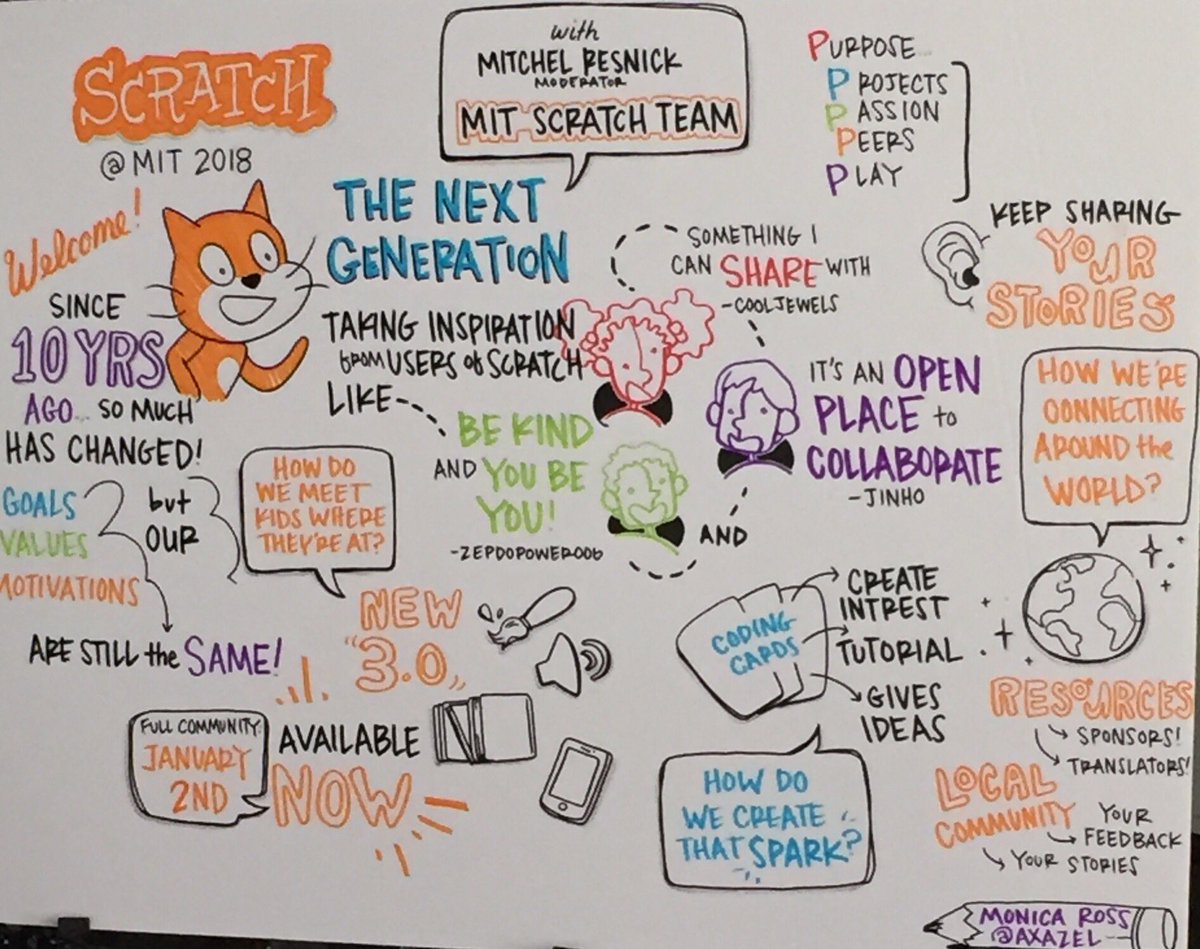 SCRATCH
@ MIT 2018
Welcome!
SINCE
10 YRS
AGO... SO MUCH
HAS CHANGED!
but
OUR
GOALS
VALUES
MOTIVATIONS
ARE STILL the SAME!
with
MITCHEL RESNICK
MODERATOR
MIT SCRATCH TEAM
THE NEXT
GENERATION
TAKING INSPIRATION
from USERS of SCRATCH
LIKE
BE KIND
AND YOU BE
YOU!
-ZEPDOPOWER006
SOMETHING I
CAN SHARE WITH
-COOLJEWELS
IT'S AN OPEN
PLACE to
COLLABORATE
-JINHO
AND
PURPOSE...
PROJECTS
PASSION
PEERS
PLAY
KEEP SHARING
YOUR
STORIES
HOW WE'RE
CONNECTING
AROUND the
WORLD?
HOW DO
WE MEET
KIDS WHERE
THEY'RE AT?
NEW
"3.0"
FULL COMMUNITY:
JANUARY
2ND
AVAILABLE
NOW
CODING
CARDS
CREATE
INTREST
TUTORIAL
GIVES
IDEAS
HOW DO
WE CREATE
THAT SPARK?
RESOURCES
SPONSORS!
TRANSLATORS!
LOCAL
COMMUNITY
YOUR
FEEDBACK
YOUR STORIES
MONICA ROSS
@AXAZEL